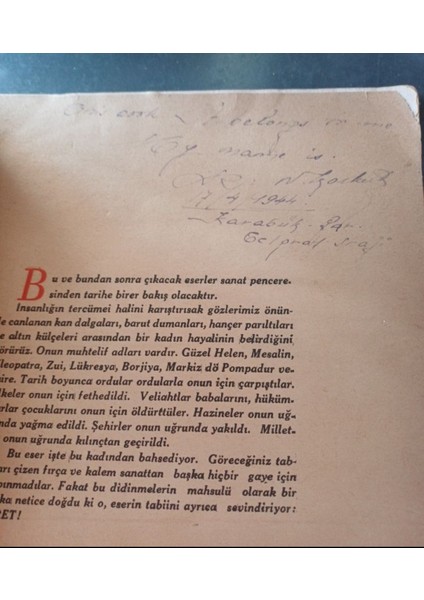 it belongs to me
My name is
N.
1944
Karabük
Bu ve bundan sonra çıkacak eserler sanat pencere-
sinden tarihe birer bakış olacaktır.
İnsanlığın tercümei halini karıştırısak gözlerimiz önün-
de canlanan kan dalgaları, barut dumanları, hançer parıltıları
altın külçeleri arasından bir kadın hayalinin belirdiğini
örürüz. Onun muhtelif adları vardır. Güzel Helen, Mesalin,
leopatra, Zui, Lükresya, Borjiya, Markiz dö Pompadur ve-
ire. Tarih boyunca ordular ordularla onun için çarpıştılar.
lkeler onun için fethedildi. Veliahtlar babalarını, hüküm-
rlar çocuklarını onun için öldürttüler. Hazineler onun uğ-
nda yağma edildi. Şehirler onun uğrunda yakıldı. Millet-
onun uğrunda kılınçtan geçirildi.
Bu eser işte bu kadından bahsediyor. Göreceğiniz tab-
arı çizen fırça ve kalem sanattan başka hiçbir gaye için
ınmadılar. Fakat bu didinmelerin mahsulü olarak bir
ka netice doğdu ki o, eserin tabiini ayrıca sevindiriyor:
RET!